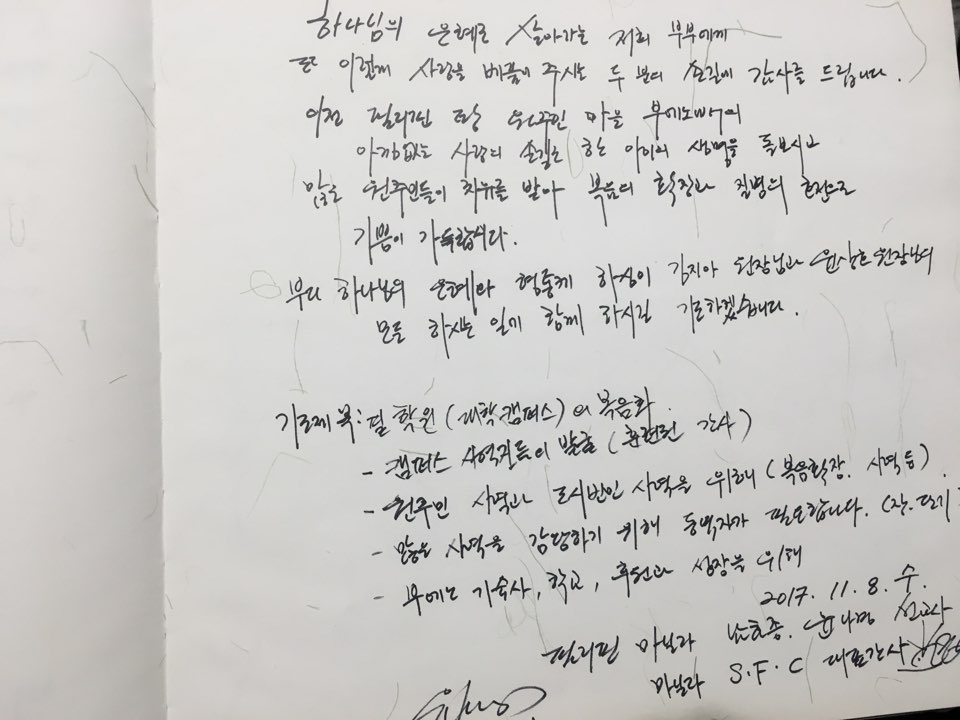 하나님의 은혜로 살아가는 저희 부부에게
또 이렇게 사랑을 베풀어 주시는 두 분의 손길에 감사를 드립니다.
이전 필리핀 땅 원주민 마을
아낌없는 사랑의 손길은 한 아이의 생명을 돌보시고
많은 원주민들이 치유를 받아 복음의 확장과 질병의 호전으로
기쁨이 가득합니다.
부디 하나님의 은혜와 하심이 김지아 원장님과 윤상호 원장님의
모든 하시는 일에 함께 하시길 기도하겠습니다.
기도제목: 필 학원(대학.캠퍼스)의 복음화
- 캠퍼스 사역자들의 발굴(훈련된 간사)
- 원주민 사역과 도시빈민 사역을 위해(복음확장. 사역등)
- 많은 사역을 감당하기 위해 동역자가 필요합니다. (장.단기
- 부에노 기숙사, 학교, 후원과 성장을 위해
2017. 11. 8. 수.
필리핀 마닐라 선교사
마닐라 S.F.C 대표간사